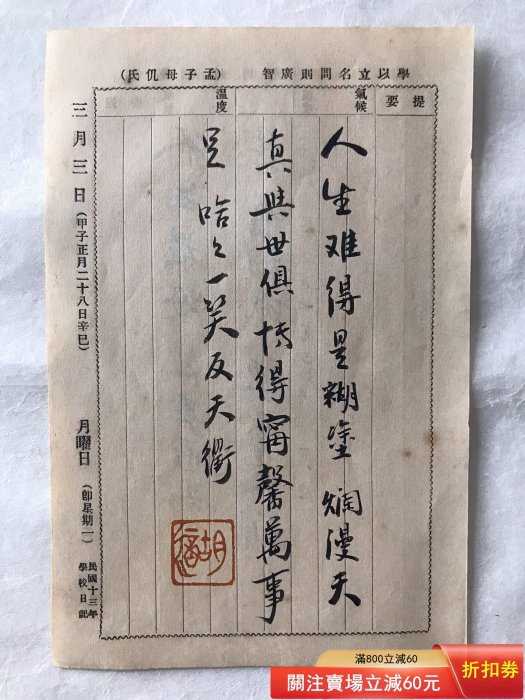 學以立名問則廣智（孟子母仉氏）
提要
氣候
溫度
人生难得是糊塗 爛漫天
真與世俱 博得甯馨萬事
足 哈々一笑反天衢
胡適
三月三日（甲子正月二十八日辛巳） 月曜日（即星期一）
民國十三年
學校日記
滿800立減60
關注賣場立減60元
折扣券